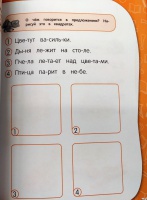 О чём говорится в предложении? На-
рисуй это в квадратах.
1 Цве-тут ва-силь-ки.
2 Ды-ня ле-жит на сто-ле.
3 Пче-ла ле-та-ет над цве-та-ми.
4 Пти-ца па-рит в не-бе.
1
2
3
4